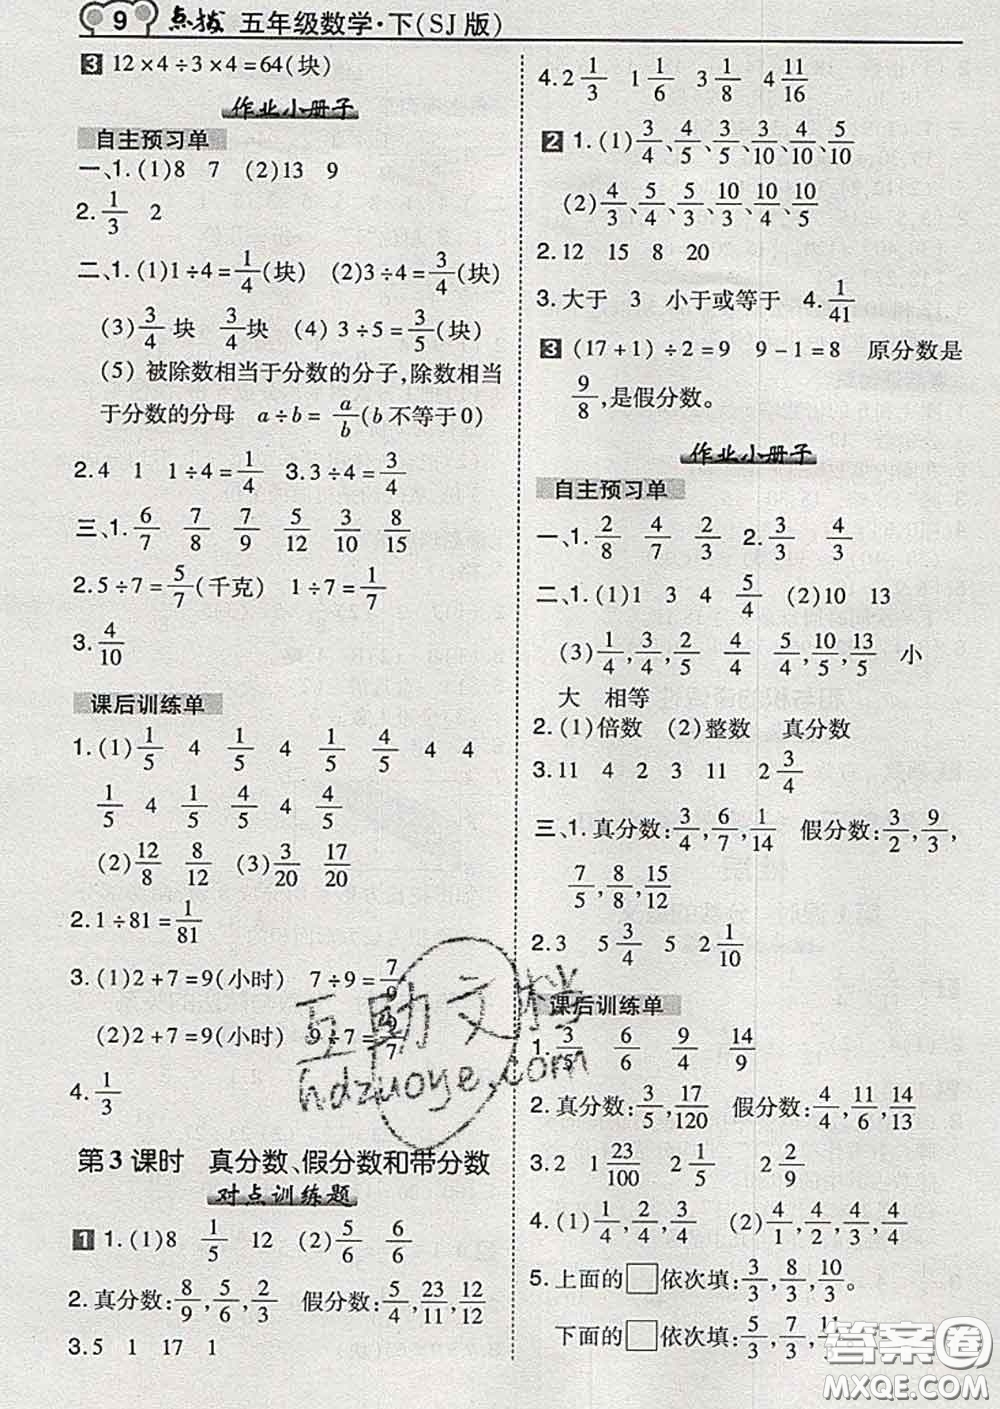 9 点拨 五年级数学·下(SJ版)
3 12×4÷3×4=64(块)
作业小册子
自主预习单
一、1.(1)8 7 (2)13 9
2. 1/3 2
二、1.(1)1÷4=1/4(块) (2)3÷4=3/4(块)
(3)3/4块 3/4块 (4) 3÷5=3/5(块)
(5) 被除数相当于分数的分子,除数相当
于分数的分母 a÷b=a/b(b不等于0)
2.4 1 1÷4=1/4 3.3÷4=3/4
三、1. 6/7 7/8 7/9 5/12 3/10 8/15
2.5÷7=5/7(千克) 1÷7=1/7
3. 4/10
课后训练单
1.(1)1/5 4 1/5 4 1/5 4/5 4 4
1/5 4 1/5 4/5 4/5 4/5
(2)12/8 8/12 (3)3/20 17/20
2.1÷81=1/81
3.(1)2+7=9(小时) 7÷9=7/9
(2)2+7=9(小时) 9÷7=9/7
4. 1/3
第3课时 真分数、假分数和带分数
对点训练题
1 1.(1)8 1/5 12 (2)5/6 6/6
2.真分数:8/9,5/6,2/3 假分数:5/4,23/11,12/12
3.5 1 17 1
4.2 1/3 1 1/6 3 1/8 4 11/16
2 1.(1)3/4、4/5、3/5、3/10、4/10、5/10
(2)4/3、5/4、5/3、10/3、10/4、10/5
2.12 15 8 20
3.大于 3 小于或等于 4. 1/41
3 (17+1)÷2=9 9-1=8 原分数是
9/8,是假分数。
作业小册子
自主预习单
一、1. 2/8 4/7 2/3 2. 3/3 4/3
二、1.(1)1 3 4 5/4 (2)10 13
(3)1/4,3/4,2/5 4/4 5/5,10/5,13/5 小
大 相等
2.(1)倍数 (2)整数 真分数
3.11 4 2 3 11 2 3/4
三、1.真分数:3/4,6/7,1/14 假分数:3/2,9/3,
7/5,8/8,15/12
2.3 5 3/4 5 2 1/10
课后训练单
1. 3/5 6/6 9/4 14/9
2.真分数:3/5,17/120 假分数:4/4,11/11,14/13
3.2 1 23/100 2 2/9
4.(1)1/4,2/4,3/4 (2)4/1,4/2,4/3,4/4
5.上面的□依次填:3/3,8/3,10/3。
下面的□依次填:5/3,7/3,11/3
互动文档
hdzuoye.com
答案圈
MXQE.COM